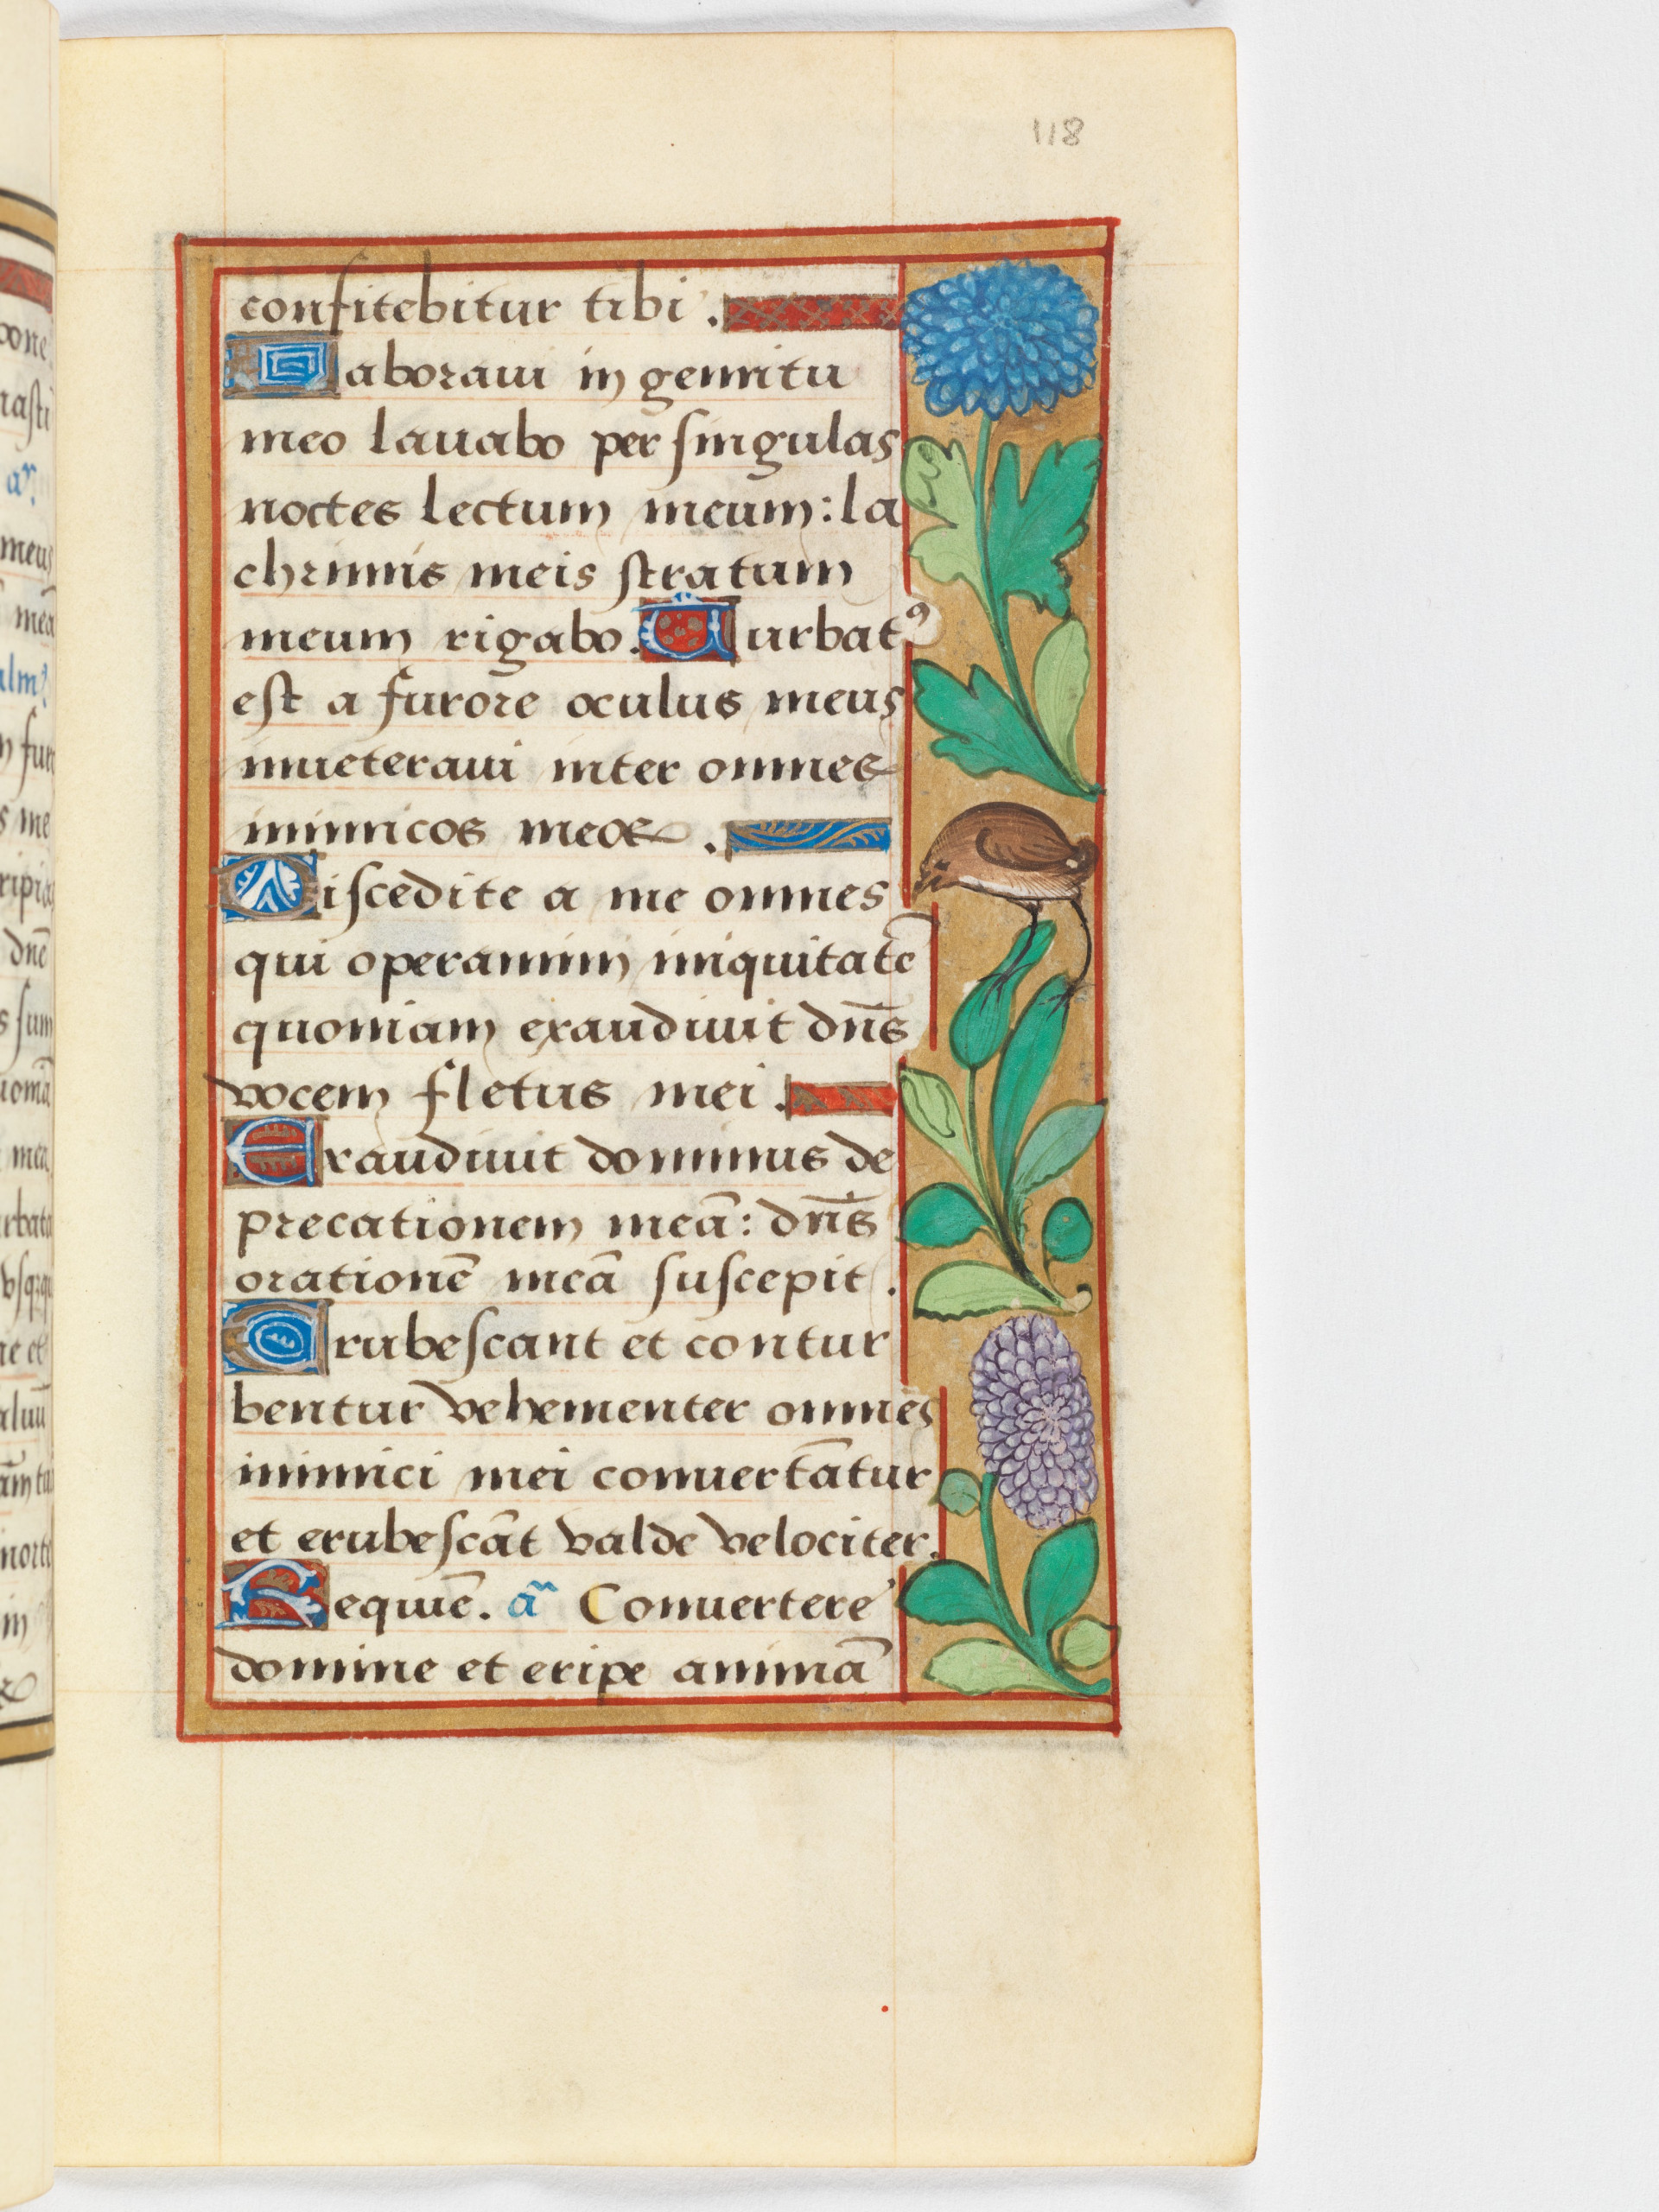 118
confitebitur tibi.
Laboraui in gemitu
meo lauabo per singulas
noctes lectum meum: la
chrimis meis stratum
meum rigabo. Turbatꝰ
est a furore oculus meus
inueteraui inter omnes
inimicos meos.
Discedite a me omnes
qui operamini iniquitatē
quoniam exaudiuit dn̄s
vocem fletus mei.
Exaudiuit dominus de
precationem meā: dn̄s
orationē meā suscepit.
Erubescant et contur
bentur vehementer omnes
inimici mei conuertātur
et erubescāt valde velociter.
Requiē. añ Conuertere
domine et eripe animā